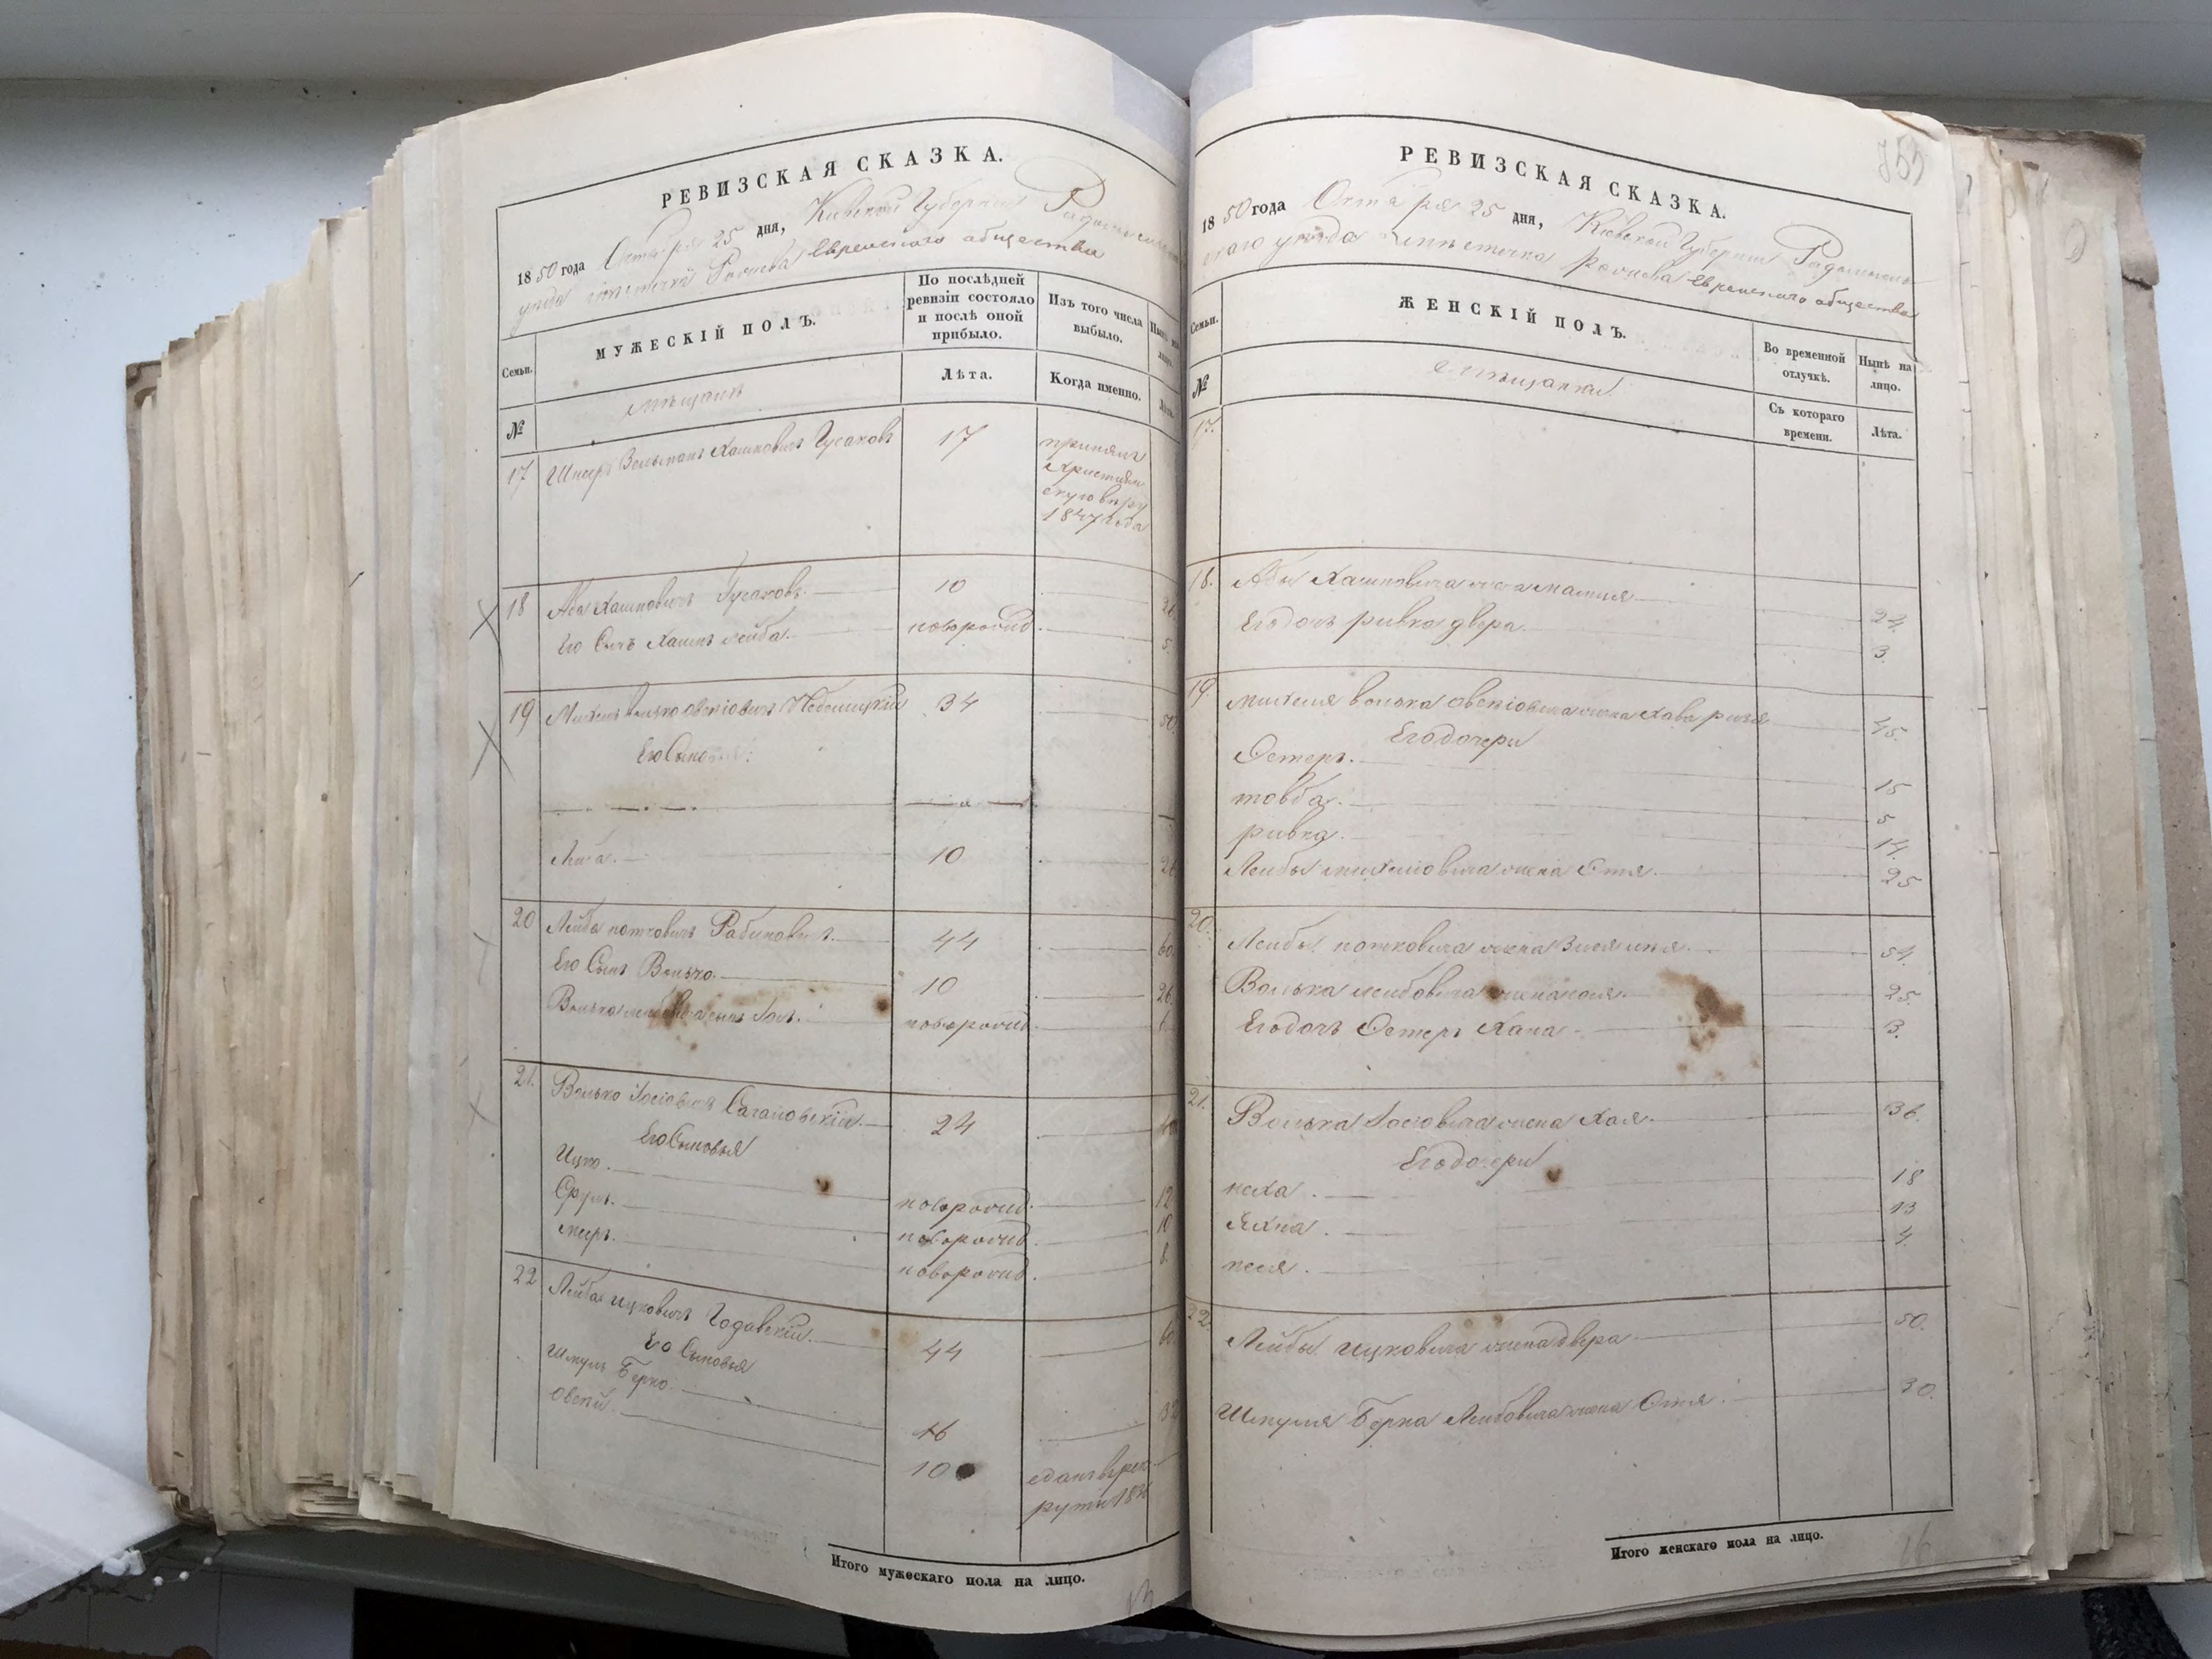 РЕВИЗСКАЯ СКАЗКА.
1850 года Октября 25 дня, Киевской Губернии Радомысльскаго
уезда местечка Рогнева Еврейского общества
Семьи.
МУЖЕСКІЙ ПОЛЪ.
По послѣдней ревизіи состояло и послѣ оной прибыло.
Изъ того числа выбыло.
Нынѣ на лицо.
№
мѣщане
Лѣта.
Когда именно.
Лѣта.
17 Шмеръ Зельманъ Хаимовичъ Гусаковъ 17 принялъ
христіян
скую вѣру
1847 года
18 Аба Хаимовичъ Гусаковъ 10 26
Его Сынъ Хаимъ Лейба новорожд. 5.
19 Михель Волько Овсіовичъ Небелицкій 34 50.
Его Сыновья:
Лейба 10 26
20 Лейба Ратковичъ Рабиновичъ 44 60.
Его Сынъ Волько. 10 26.
Волька Лейбовича сынъ новорожд.
21. Волько Іосіовичъ 24
Его Сыновья
Ицко. новорожд. 12
Сруль. новорожд. 10
Меръ. новорожд. 8.
22 Лейба Ицковичъ Годавскій. 44 60.
Его Сыновья
Шмуль Берко. 16 32
Овсѣй. 10 сданъ в рек
руты
Итого мужескаго пола на лицо.
13
РЕВИЗСКАЯ СКАЗКА.
755
1850 года Октября 25 дня, Кіевской Губерніи Радомысль
скаго уѣзда мѣстечка Еврейскаго общества
Семьи.
ЖЕНСКІЙ ПОЛЪ.
Во временной отлучкѣ.
Нынѣ на лицо.
№
мѣщанки
Съ котораго времени.
Лѣта.
17.
18. Абы Хаимовича жена 24.
Его дочь ривка двера. 3.
19. Михеля Волька Овсіовича жена Хава 45.
Его дочери
Эстеръ. 15
товба. 5
ривка. 14.
Лейбы Михеліовича жена Этя. 25
20. Лейбы жена 54.
Волька Лейбовича жена 25.
Его дочь Эстеръ Хана 3.
21. Волька Іосіовича жена Хая. 36.
Его дочери
неха. 18
Яхна. 13
песя. 4.
22. Лейбы Ицковича жена двера 50.
Шмуля Берка Лейбовича жена Этя. 30.
Итого женскаго пола на лицо.
16